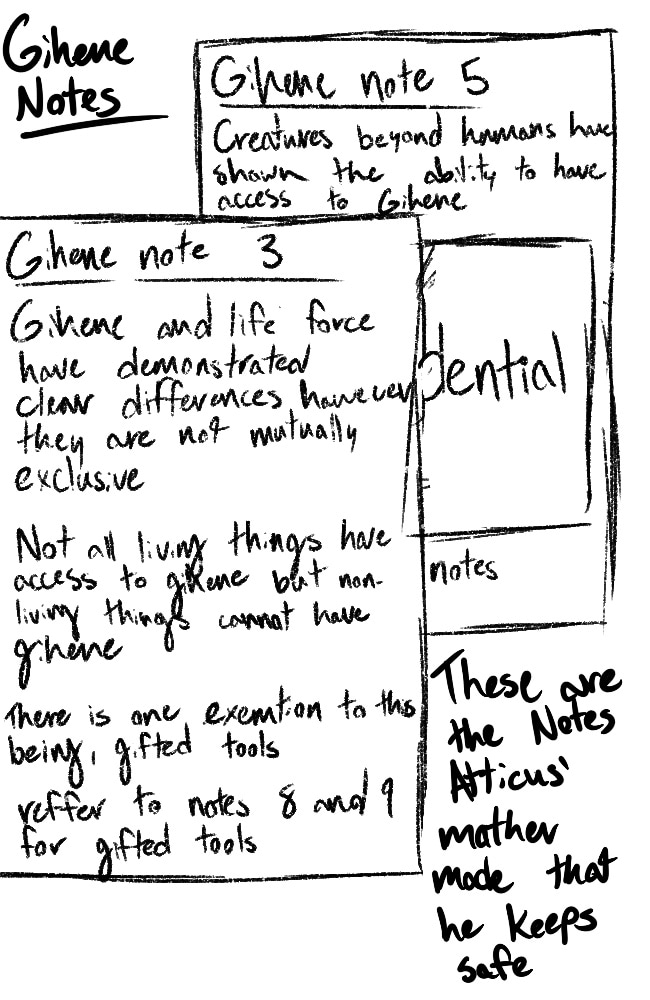 Gihene
Notes
Gihene note 5
Creatures beyond humans have
shown the ability to have
access to Gihene
dential
notes
Gihene note 3
Gihene and life force
have demonstrated
clear differences however
they are not mutually
exclusive
Not all living things have
access to gihene but non-
living things cannot have
gihene
There is one exemtion to this
being, gifted tools
reffer to notes 8 and 9
for gifted tools
These are
the Notes
Atticus'
mother
made that
he keeps
safe